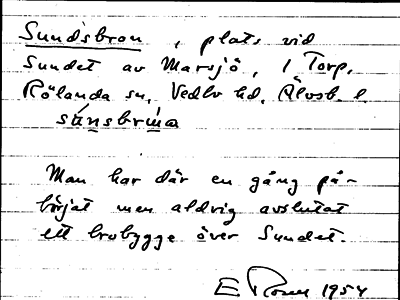 Sundsbron, plats vid
Sundet av Marsjö, i Torp,
Rölanda sn, Vedbo hd, Älvsb. l.
súnsbrùna
Man har där en gång på-
börjat men aldrig avslutat
ett brobygge över Sundet.
E 1954